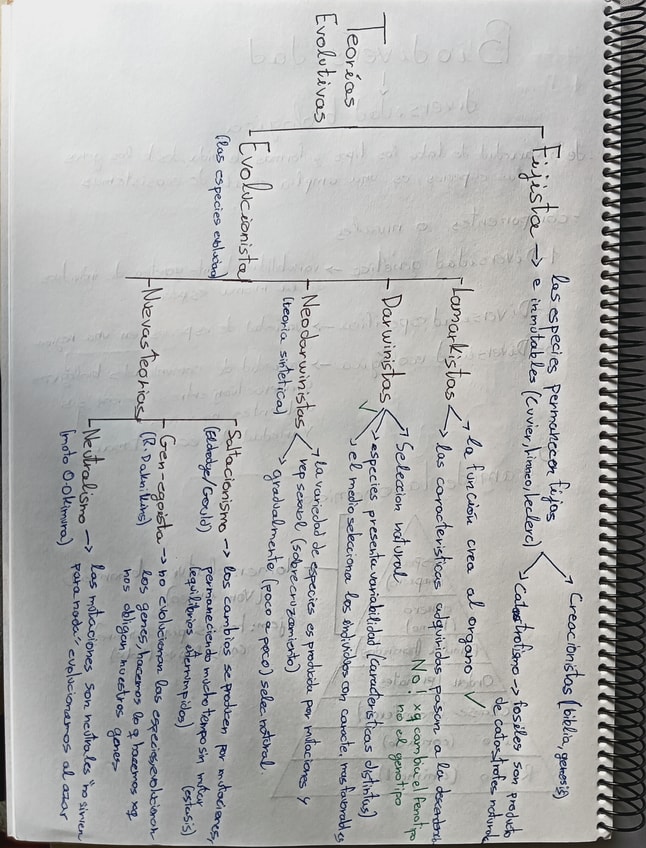 Teorías
Evolutivas
Fijista → las especies permanecen fijas
e inmutables (Cuvier, linneo, leclerc)
→ Creacionistas (biblia, genesis)
→ Catastrofismo → fosiles son producto
de catastrofes natural
Evolucionista
(las especies evolucionan)
Lamarkistas
→ la función crea al organo ✓
→ las características adquiridas pasan a la descendencia
No! xq cambia el fenotipo
no el genotipo
Darwinistas ✓
→ Seleccion natural
→ especies presenta variabilidad (características distintas)
→ el medio selecciona los individuos con caracte. mas favorables
Neodarwinistas
(teoria sintetica)
→ la variedad de especies es producida por mutaciones y
rep sexual (sobrecruzamiento)
→ gradualmente (poco a poco) selec natural.
Nuevas teorias
Saltacionismo → los cambios se producen por mutaciones,
(Eldredge/Gould) permaneciendo mucho tiempo sin mutar
(equilibrios interrumpidos) (estasis)
Gen-egoista → no evolucionan las especies, evolucionan
(R. ) los genes, hacemos lo q hacemos xq
nos obligan nuestros genes
Neutralismo → las mutaciones son neutrales "no sirven
(moto O.Okimura) para nada": evolucionamos al azar